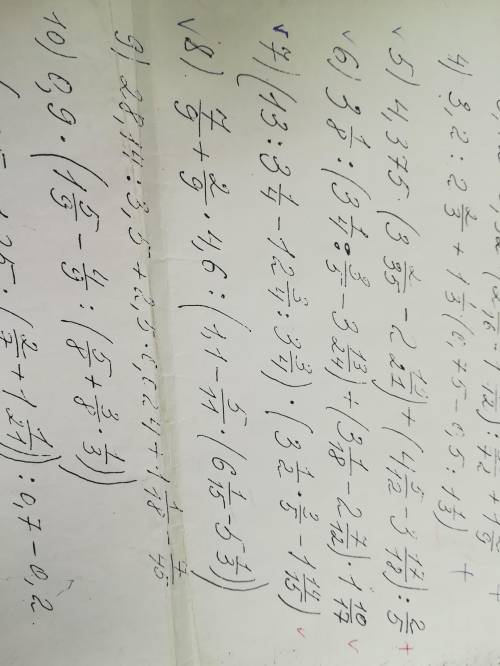 4) 3,2 : 2 2/3 + 1 1/3 · (0,75 - 0,5 : 1 1/3) +
√ 5) 4,375 · (3 2/35 - 2 / 21) + (4 5/12 - 3 17/18) : 2/5 +
√ 6) 3 1/8 : (3 1/4 : 3/5 - 3 13/24) + (3 1/18 - 2 7/12) · 1 10/17 √
√ 7) (13 : 3 1/4 - 12 3/4 : 3 3/4) · (3 1/2 · 2/5 - 1 14/15) √
√ 8) 7/9 + 2/9 · 4,6 : (1,1 - 5/11 · (6 1/15 - 5 1/3))
9) 28,14 : 3,5 + 2,5 · 0,024 + 1 1/18 - 7/45
10) 0,9 · (1 5/9 - 4/9 : (5/8 + 3/8 · 1/3))
(2/7 + 1 1/21)) : 0,7 - 0,2.